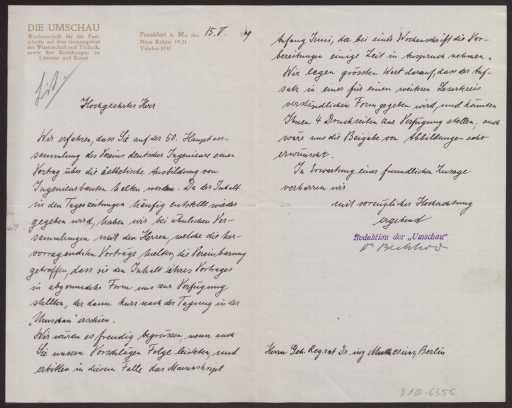 DIE UMSCHAU
Wochenschrift für die Fort-
schritte auf dem Gesamtgebiet
der Wissenschaft und Technik,
sowie ihre Beziehungen zu
Literatur und Kunst
Frankfurt a. M., den 15. V. 09
Neue Kräme 19/21
Telefon
Hochgeehrter Herr
Wir erfahren, dass Sie auf der 50. Hauptver-
sammlung des Vereins deutscher Ingenieure einen
Vortrag über die ästhetische Ausbildung von
Ingenieurbauten halten werden. Da der Inhalt
in den Tageszeitungen häufig entstellt wieder
gegeben wird, haben wir bei ähnlichen Ver-
sammlungen mit den Herren, welche die her-
vorragendsten Vorträge hielten, die Vereinbarung
getroffen, dass sie den Inhalt ihres Vortrages
in abgerundeter Form uns zur Verfügung
stellten, der dann kurz nach der Tagung in der
"Umschau" erschien.
Wir würden es freudig begrüssen, wenn auch
Sie unserem Vorschlage Folge leisteten, und
erbitten in diesem Falle das Manuskript
Anfang Juni, da bei einer Wochenschrift die Vor-
bereitungen einige Zeit in Anspruch nehmen.
Wir legen grössten Wert darauf, dass der Auf-
satz in einer für einen weiteren Leserkreis
verständlichen Form gegeben wird, und könnten
Ihnen 4 Druckseiten zur Verfügung stellen, auch
wäre uns die Beigabe von Abbildungen sehr
erwünscht.
In Erwartung einer freundlichen Zusage
verharren wir
mit vorzüglicher Hochachtung
ergebenst
Redaktion der „Umschau"
Bechhold
Herrn Geh. Regrat Dr. ing Muthesius, Berlin